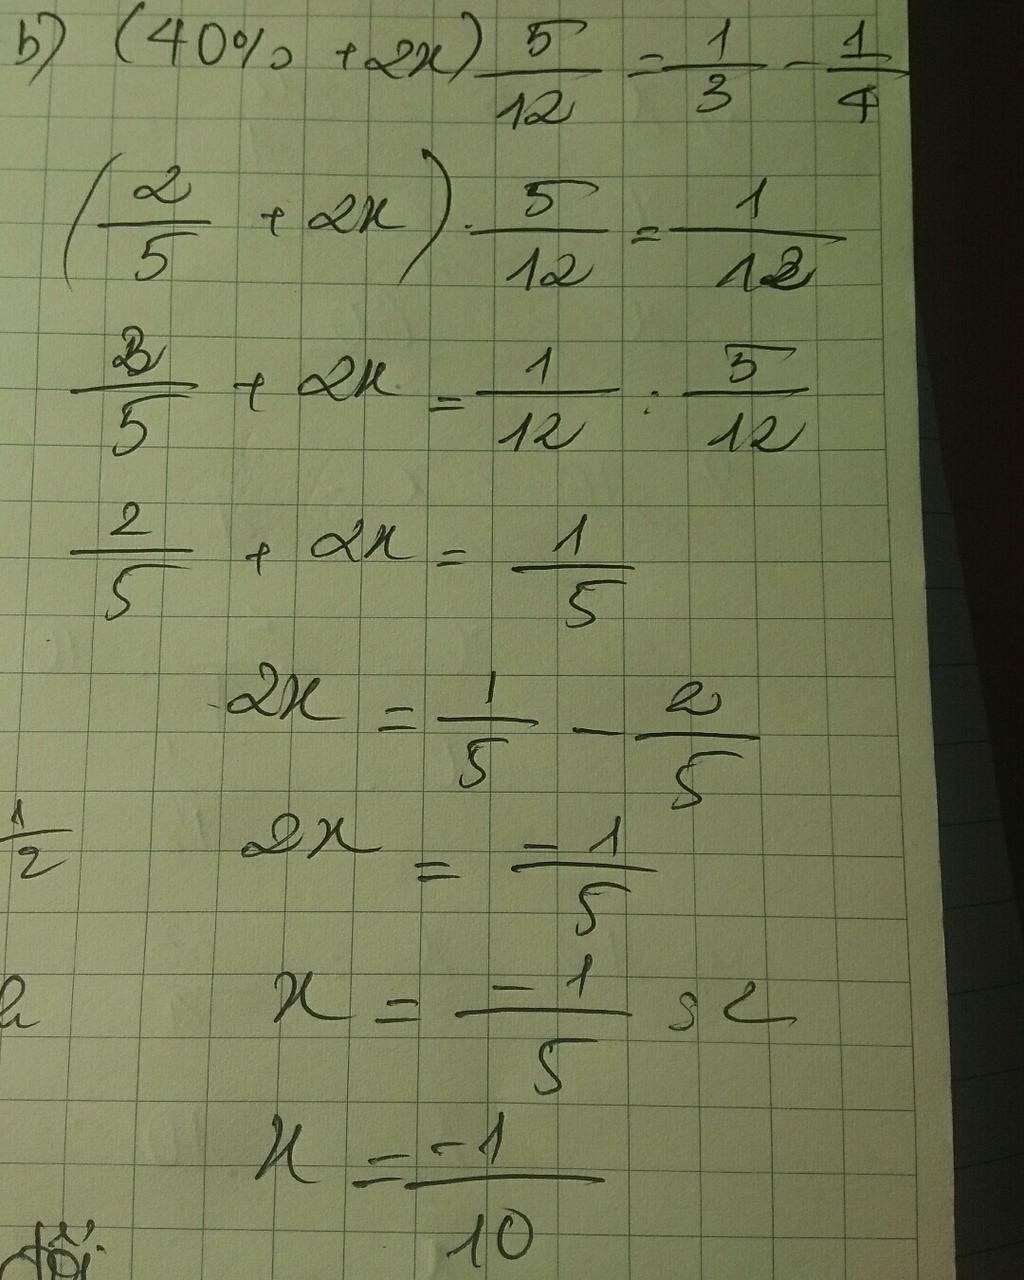 b) (40% + 2x) 5/12 = 1/3 - 1/4
(2/5 + 2x) . 5/12 = 1/12
2/5 + 2x = 1/12 : 5/12
2/5 + 2x = 1/5
2x = 1/5 - 2/5
1/2 2x = -1/5
x = -1/5 : 2
x = -1/10
đối